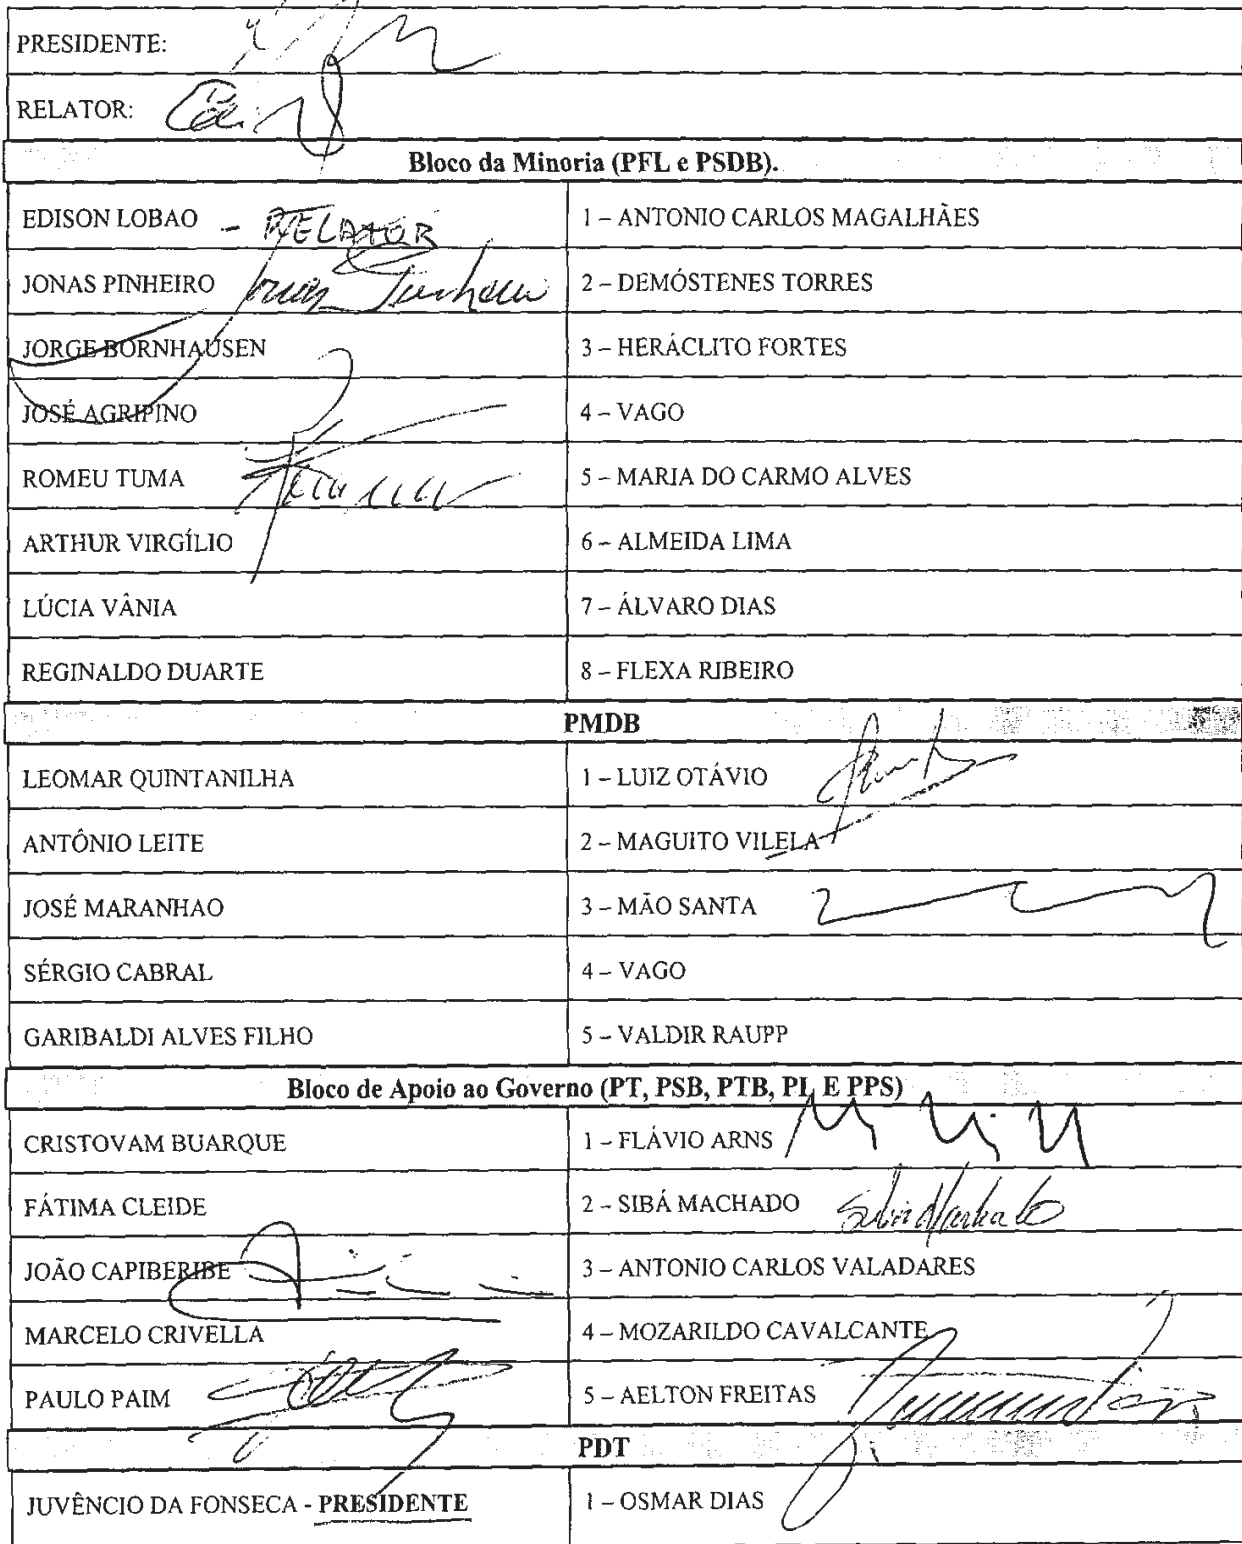 PRESIDENTE:
RELATOR:
Bloco da Minoria (PFL e PSDB).
EDISON LOBAO - RELATOR
1 – ANTONIO CARLOS MAGALHÃES
JONAS PINHEIRO Jonas Pinheiro
2 – DEMÓSTENES TORRES
JORGE BORNHAUSEN
3 – HERÁCLITO FORTES
JOSÉ AGRIPINO
4 – VAGO
ROMEU TUMA
5 – MARIA DO CARMO ALVES
ARTHUR VIRGÍLIO
6 – ALMEIDA LIMA
LÚCIA VÂNIA
7 – ÁLVARO DIAS
REGINALDO DUARTE
8 – FLEXA RIBEIRO
PMDB
LEOMAR QUINTANILHA
1 – LUIZ OTÁVIO
ANTÔNIO LEITE
2 – MAGUITO VILELA
JOSÉ MARANHAO
3 – MÃO SANTA
SÉRGIO CABRAL
4 – VAGO
GARIBALDI ALVES FILHO
5 – VALDIR RAUPP
Bloco de Apoio ao Governo (PT, PSB, PTB, PL E PPS)
CRISTOVAM BUARQUE
1 – FLÁVIO ARNS
FÁTIMA CLEIDE
2 – SIBÁ MACHADO
JOÃO CAPIBERIBE
3 – ANTONIO CARLOS VALADARES
MARCELO CRIVELLA
4 – MOZARILDO CAVALCANTE
PAULO PAIM
5 – AELTON FREITAS
PDT
JUVÊNCIO DA FONSECA - PRESIDENTE
1 – OSMAR DIAS